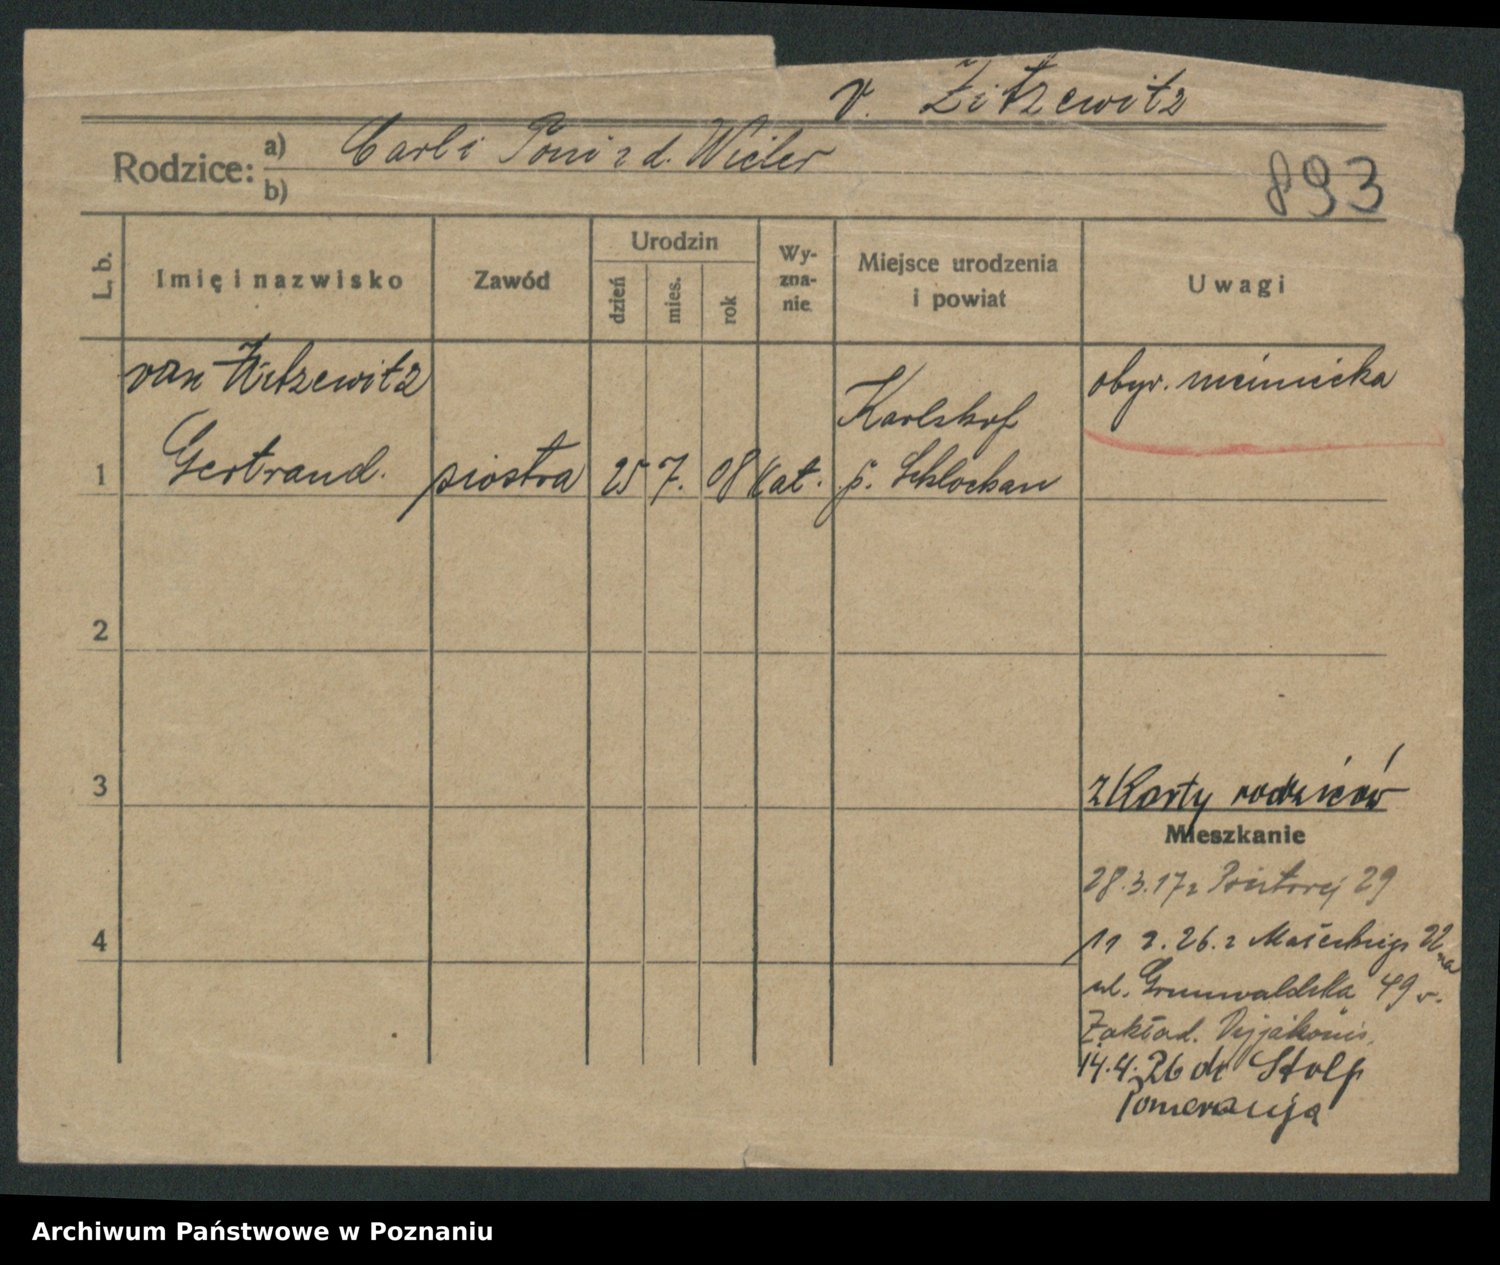 v. Zitzewitz
Rodzice: a) Carl i Toni z d. Wieler
b)
893
L. b.
Imię i nazwisko
Zawód
Urodzin
dzień
mies.
rok
Wy-
zna-
nie
Miejsce urodzenia
i powiat
Uwagi
von Zitzewitz
Gertraud.
1
siostra
25
7.
08
Kat.
Karlshof
p. Schlochau
obyw. niemiecka
2
3
4
z Karty rodziców
Mieszkanie
28.3.17 z 29
11 2. 26. z 22 na
ul. Grunwaldzka 49 v.
Zakład. Dyjakonis.
14.4.26 do Stolp
Pomeranija
Archiwum Państwowe w Poznaniu